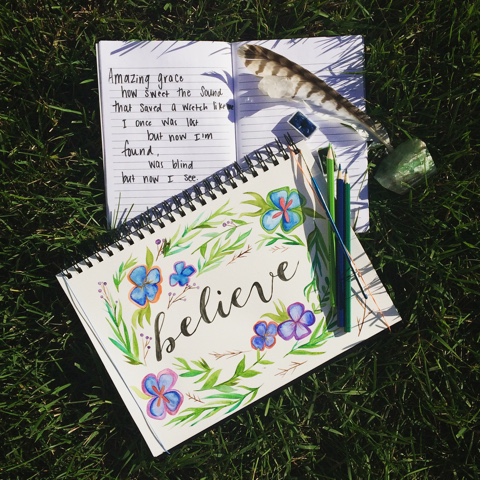 Amazing grace
how sweet the sound
that saved a wretch like
I once was lost
but now I'm
found.
was blind
but now I see.
believe